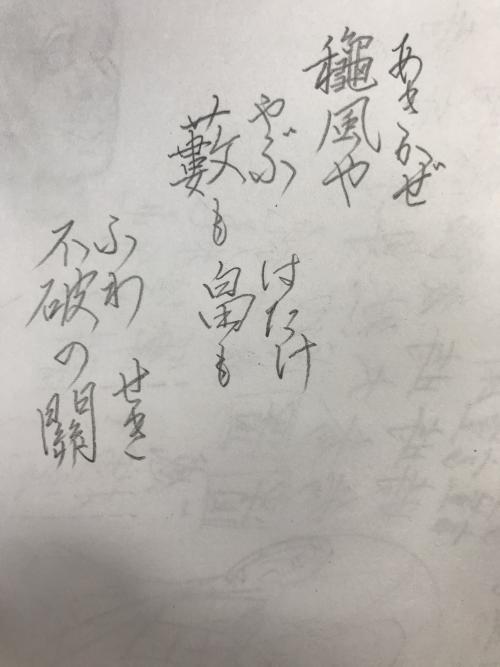 あきかぜ
龝風や
やぶ はたけ
藪も畠も
ふわ せき
不破の關